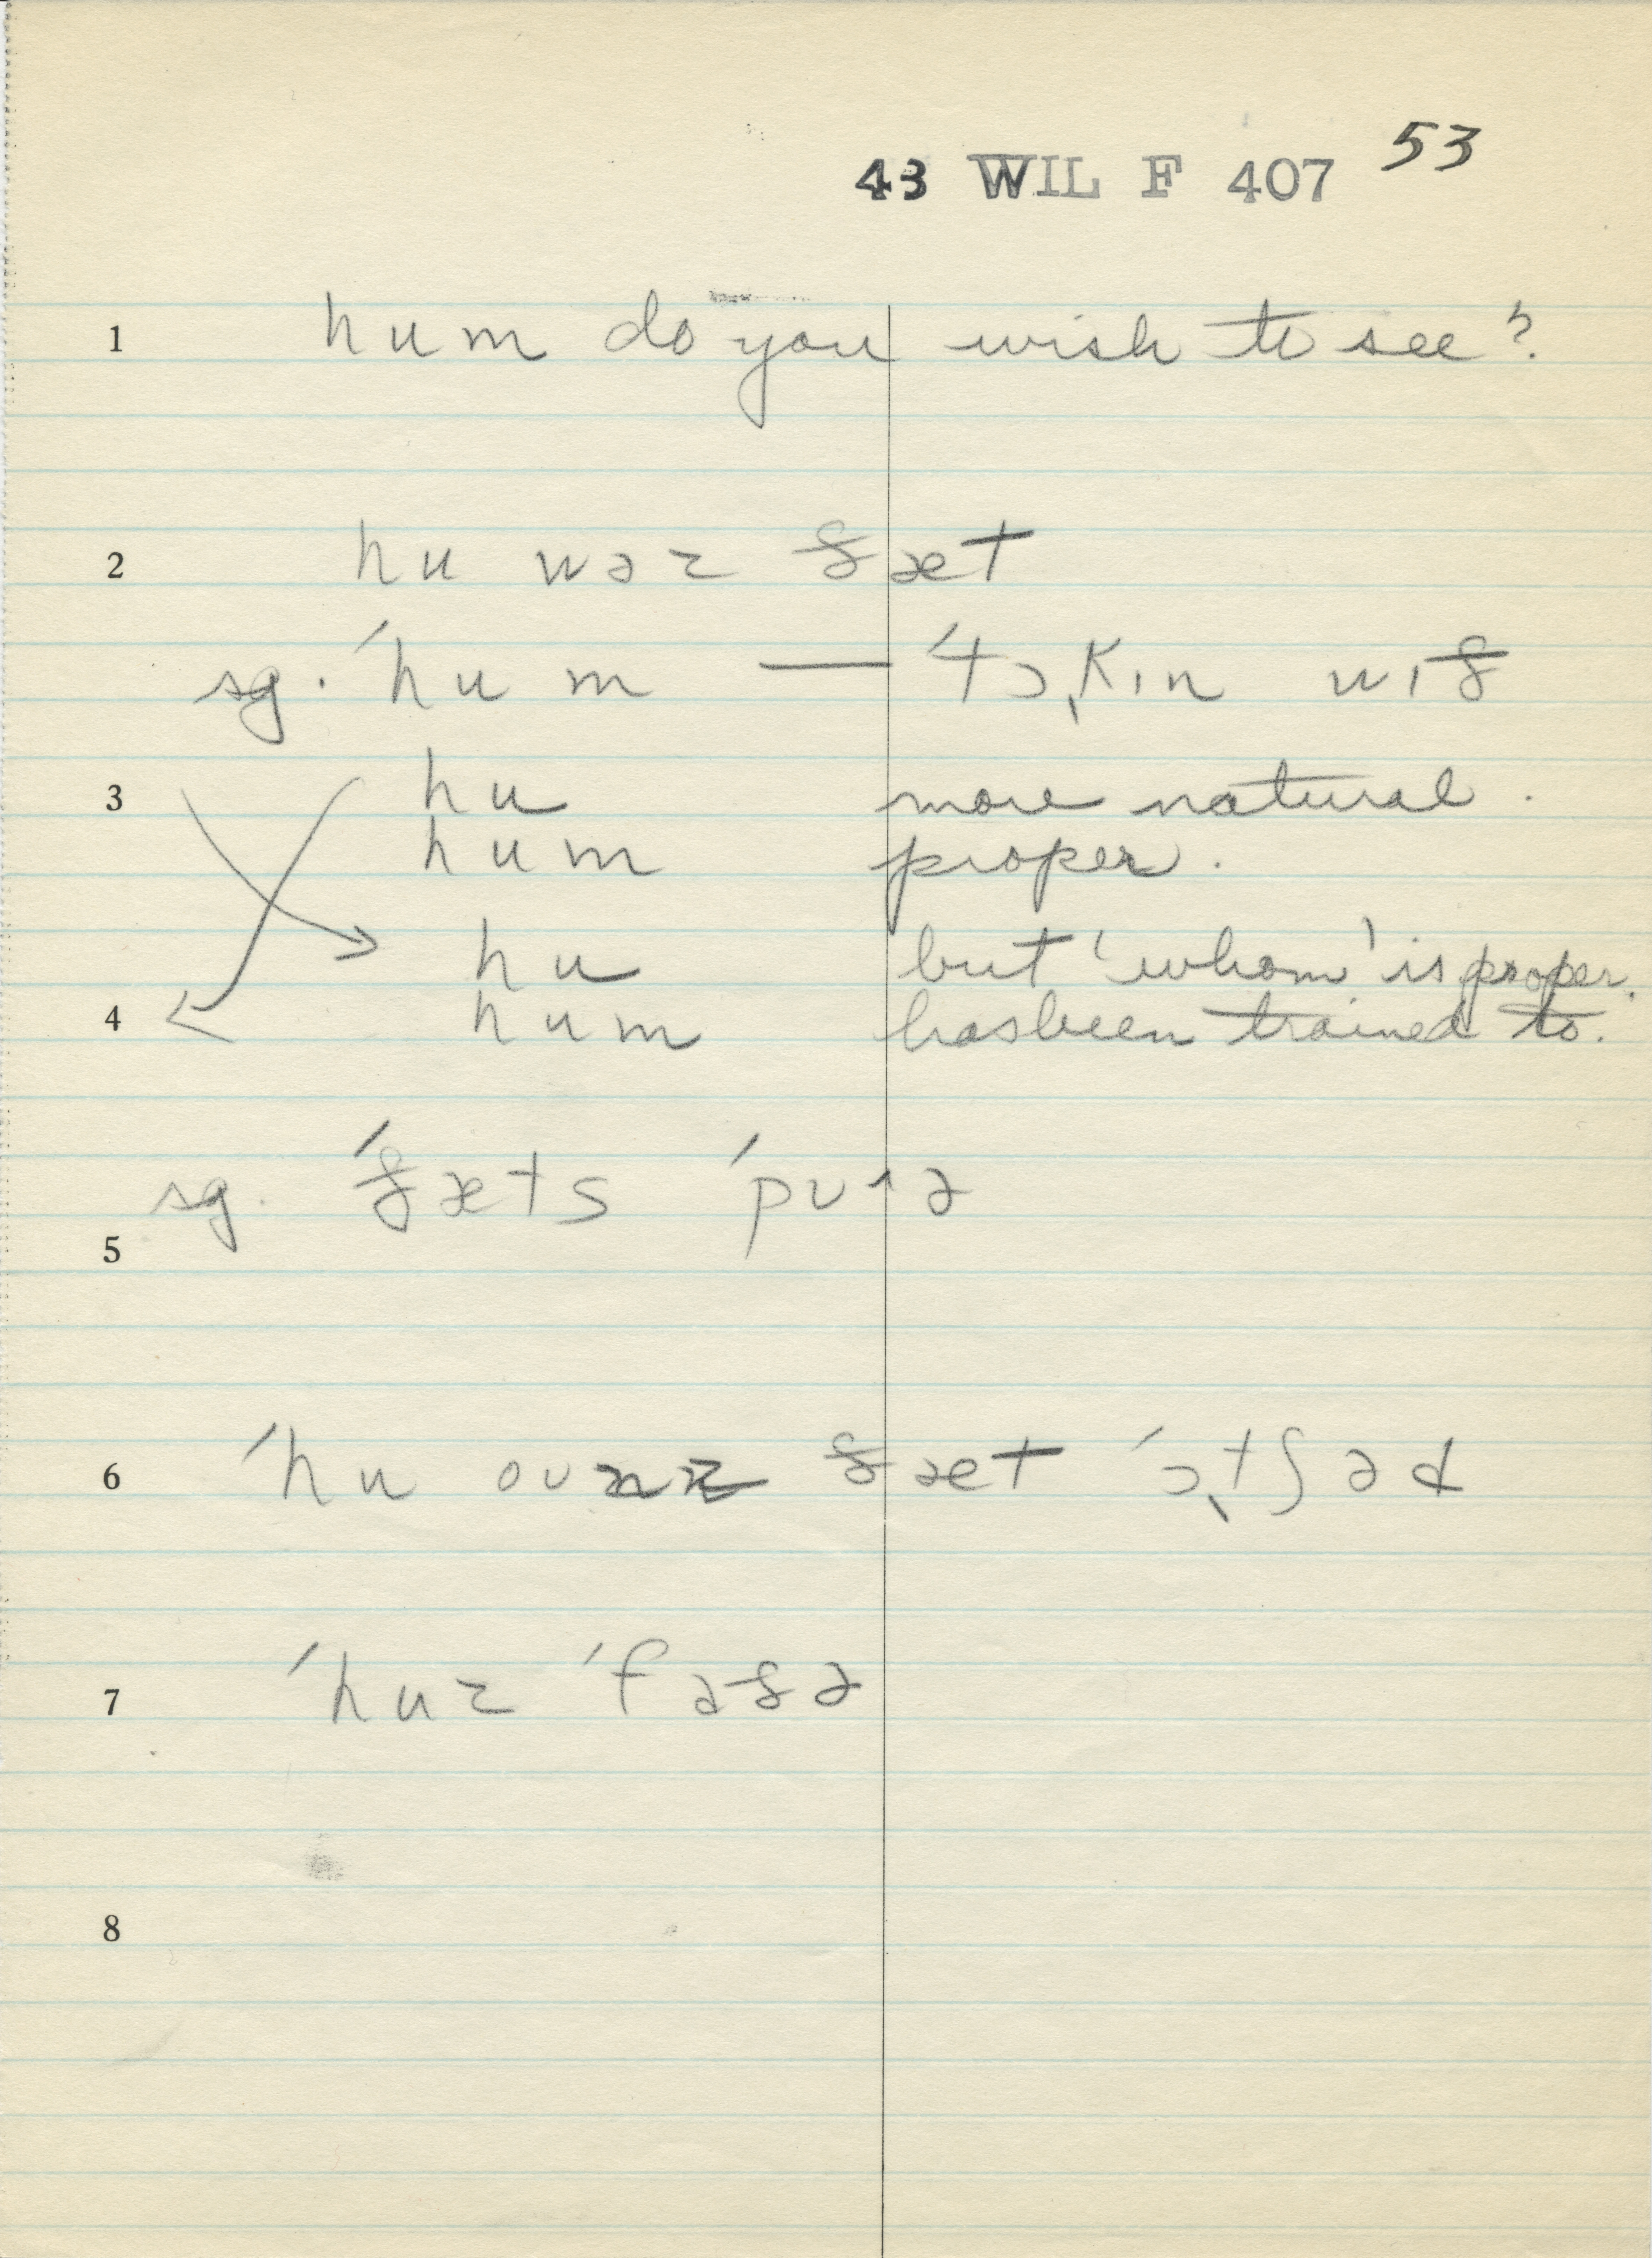 43 WIL F 407 53
1 hum do you wish to see?
2 hu wəz ðæt
sg. ˈhum — ˈtɔ̜kɪn wɪð
3 hu more natural.
hum proper.
hu but 'whom' is proper.
4 hum has been trained to.
sg. ˈðæts ˈpʊɹə
5
6 ˈhu oʊnz ðæt ˈɔ̜tʃəd
7 ˈhuz ˈfaðə
8